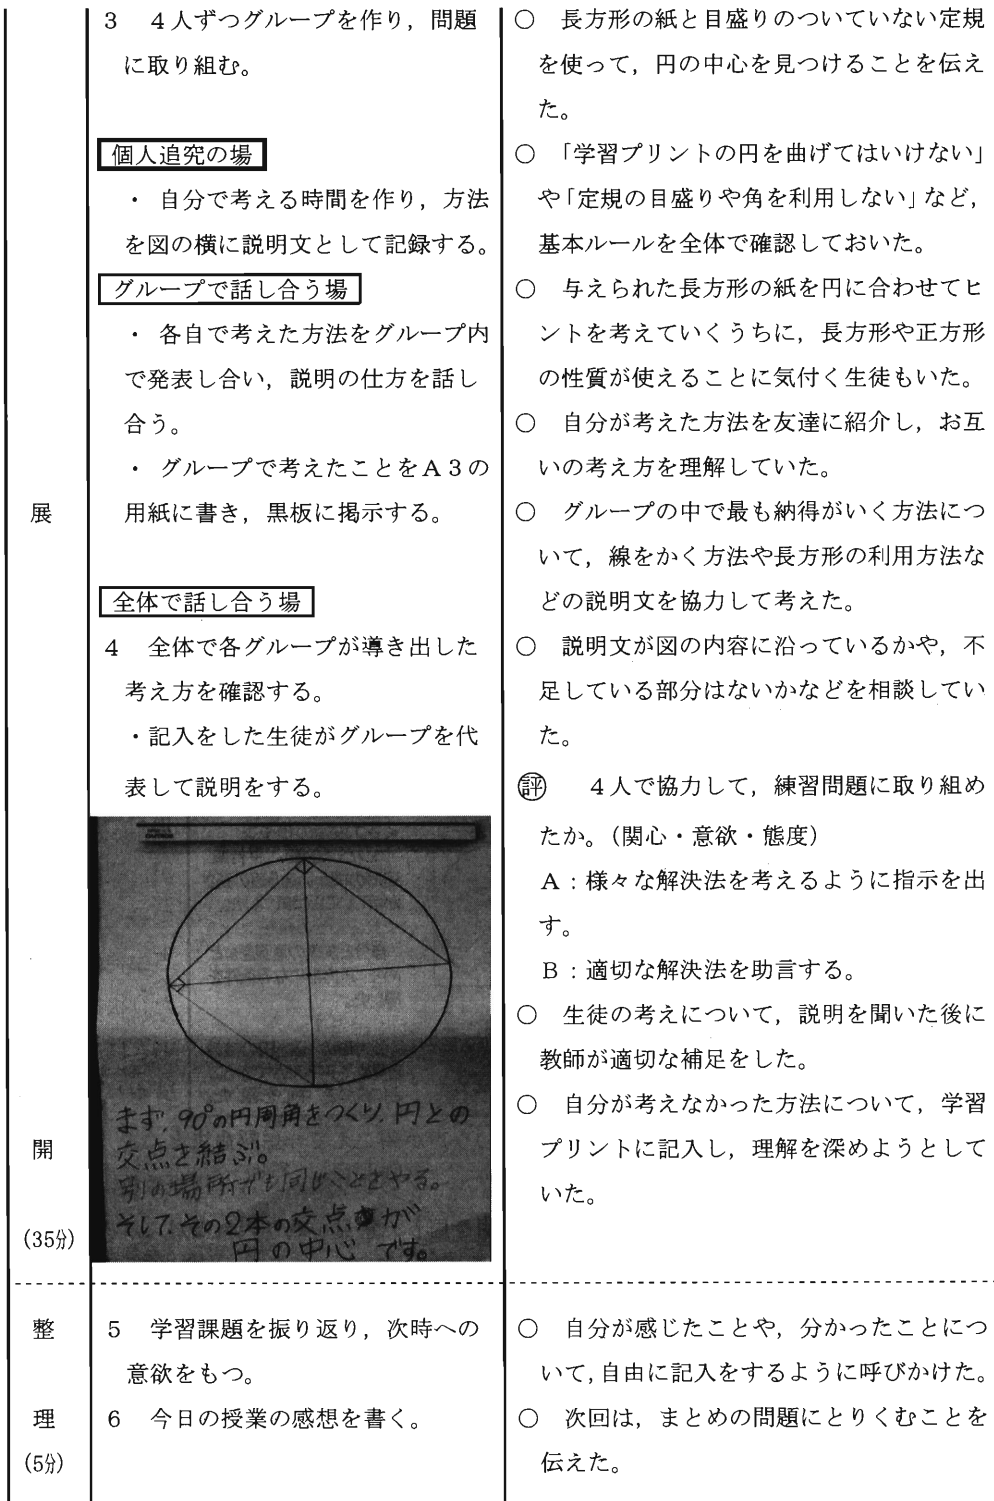 展
開
(35分)
3　４人ずつグループを作り，問題
に取り組む。
個人追究の場
・ 自分で考える時間を作り，方法
を図の横に説明文として記録する。
グループで話し合う場
・ 各自で考えた方法をグループ内
で発表し合い，説明の仕方を話し
合う。
・ グループで考えたことをA３の
用紙に書き，黒板に掲示する。
全体で話し合う場
4　全体で各グループが導き出した
考え方を確認する。
・記入をした生徒がグループを代
表して説明をする。
まず，90°の円周角をつくり，円との
交点を結ぶ。
別の場所でも同じことをやる。
そして，その2本の交点が
円の中心 です。
○　長方形の紙と目盛りのついていない定規
を使って，円の中心を見つけることを伝え
た。
○　「学習プリントの円を曲げてはいけない」
や「定規の目盛りや角を利用しない」など，
基本ルールを全体で確認しておいた。
○　与えられた長方形の紙を円に合わせてヒ
ントを考えていくうちに，長方形や正方形
の性質が使えることに気付く生徒もいた。
○　自分が考えた方法を友達に紹介し，お互
いの考え方を理解していた。
○　グループの中で最も納得がいく方法につ
いて，線をかく方法や長方形の利用方法な
どの説明文を協力して考えた。
○　説明文が図の内容に沿っているかや，不
足している部分はないかなどを相談してい
た。
評　４人で協力して，練習問題に取り組め
たか。（関心・意欲・態度）
A：様々な解決法を考えるように指示を出
す。
B：適切な解決法を助言する。
○　生徒の考えについて，説明を聞いた後に
教師が適切な補足をした。
○　自分が考えなかった方法について，学習
プリントに記入し，理解を深めようとして
いた。
整
理
(5分)
5　学習課題を振り返り，次時への
意欲をもつ。
6　今日の授業の感想を書く。
○　自分が感じたことや，分かったことにつ
いて，自由に記入をするように呼びかけた。
○　次回は，まとめの問題にとりくむことを
伝えた。